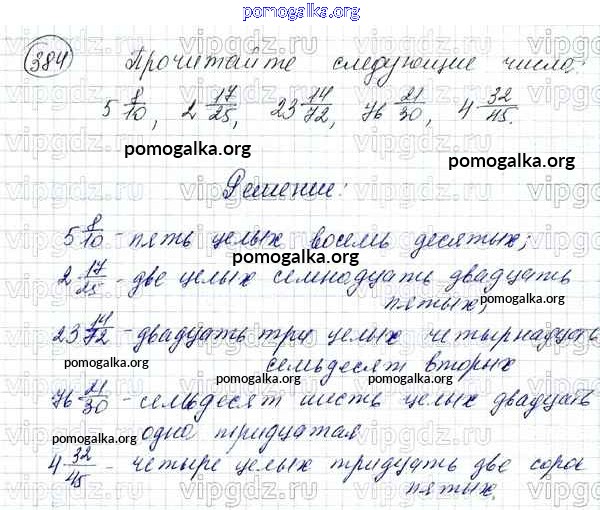 pomogalka.org
384 Прочитайте следующие числа:
5 8/10, 2 17/25, 23 14/72, 76 21/30, 4 32/45.
pomogalka.org pomogalka.org
Решение:
5 8/10 - пять целых восемь десятых;
pomogalka.org
2 17/25 - две целых семнадцать двадцать
пятых;
pomogalka.org
23 14/72 - двадцать три целых четырнадцать
pomogalka.org
семьдесят вторых
pomogalka.org pomogalka.org
76 21/30 - семьдесят шесть целых двадцать
одна тридцатая
pomogalka.org
4 32/45 - четыре целых тридцать две соро
пятых.
pomogalka.org